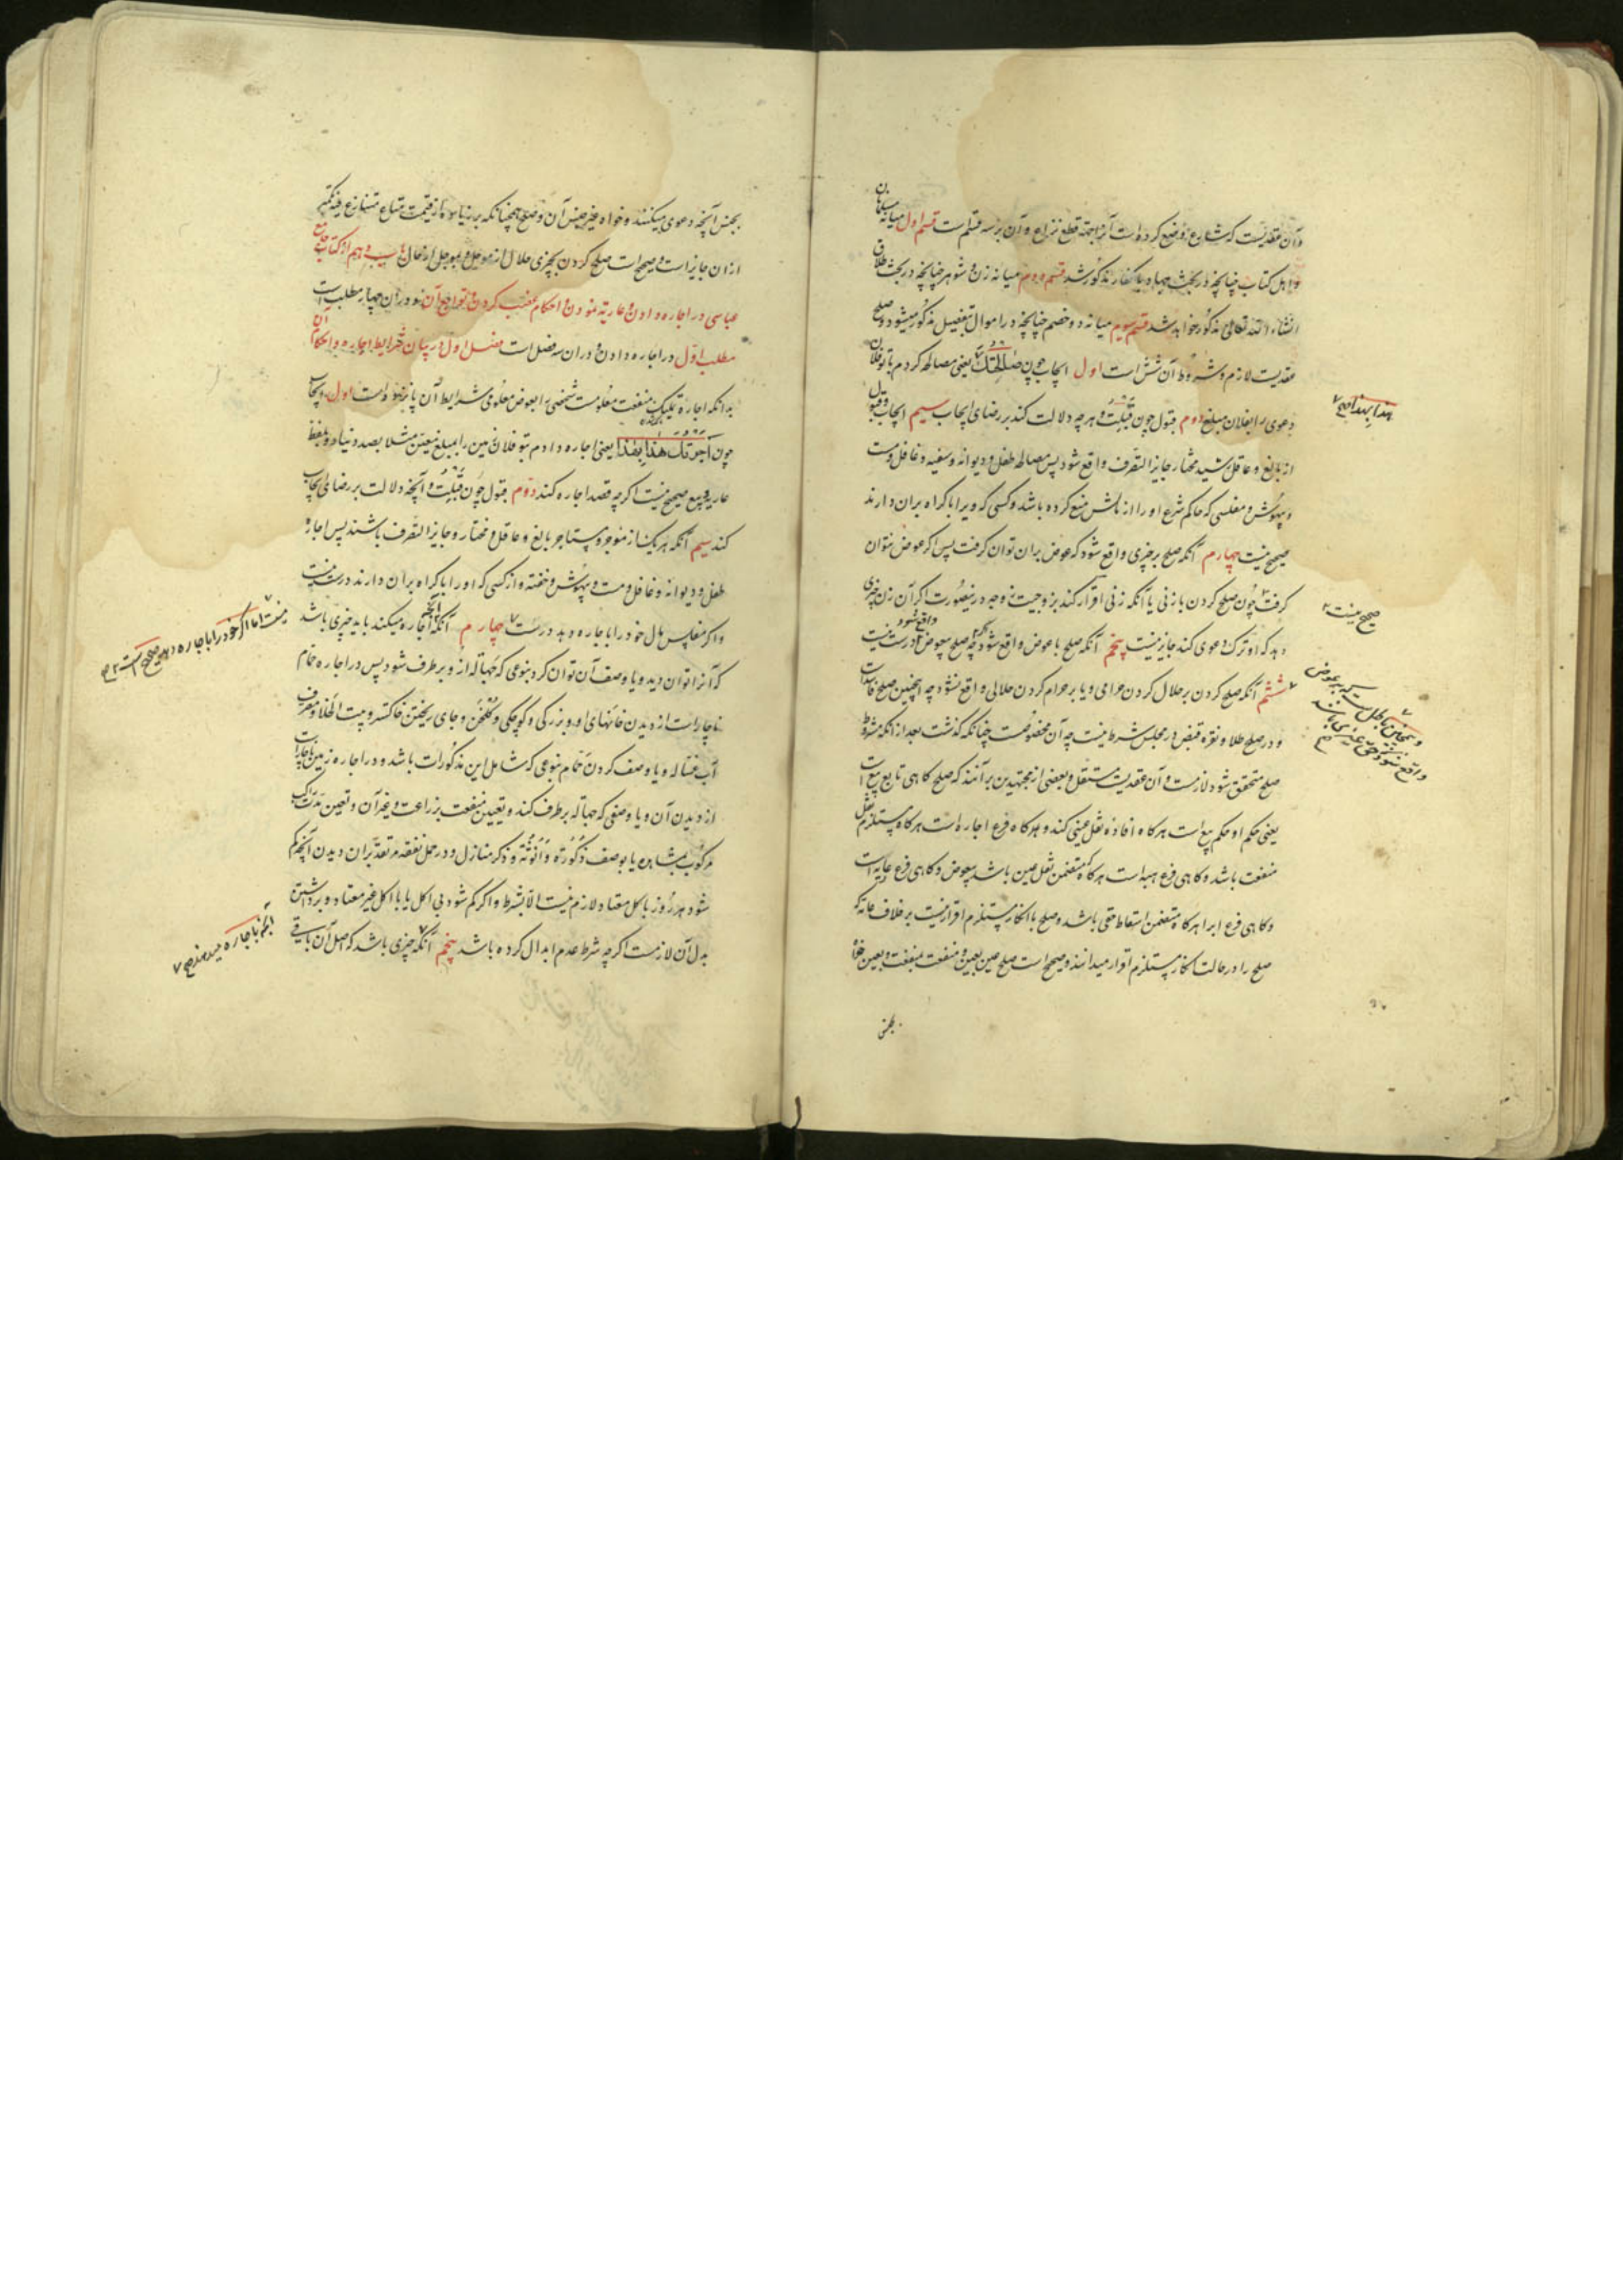 وآن عقدیست که شارع وضع کرده است آنرا بجهة قطع نزاع وآن بر سه قسم است قسم اول میانه مسلمانان
واهل کتاب چنانچه در بحث جهاد با کفار مذکور شد قسم دوم میانه زن و شوهر چنانچه در بحث طلاق
انشاء الله تعالی مذکور خواهد شد قسم سیوم میانه دو خصم چنانچه در اموال بتفصیل مذکور میشود و صلح
عقدیست لازم و شروط آن شش است اول ایجاب چون صالحتک یعنی مصالحه کردم با تو فلان
دعوی را بفلان مبلغ دوم قبول چون قبلت و هر چه دلالت کند بر رضای ایجاب سیم ایجاب و قبول
از بالغ و عاقل رشید مختار جایز التصرف واقع شود پس مصالحه طفل و دیوانه و سفیه و غافل و مست
و بیهوش و مفلسی که حاکم شرع او را از مالش منع کرده باشد و کسی که ویرا باکراه بران دارند
صحیح نیست چهارم آنکه صلح بر چیزی واقع شود که عوض بران توان گرفت پس اگر عوض نتوان
گرفت چون صلح کردن با زنی یا آنکه زنی اقرار کند بزوجیت غیر در نیصورت اگر آن زن چیزی
دهد که او ترک دعوی کند جایز نیست پنجم آنکه صلح با عوض واقع شود چه صلح بیعوض درست نیست
ششم آنکه صلح کردن بر حلال کردن حرامی و یا بر حرام کردن حلالی واقع نشود چه اینچنین صلح فاسد است
و در صلح طلا و نقره قبض در مجلس شرط نیست چه آن مخصوص چنانکه گذشت بعد از آنکه شروط
صلح متحقق شود لازمست و آن عقدیست مستقل و بعضی از مجتهدین برآنند که صلح گاهی تابع بیع است
یعنی حکم او حکم بیع است هرگاه افاده نقل عینی کند و گاه فرع اجاره است هرگاه مستلزم نقل
منفعت باشد و گاهی فرع هبه است هرگاه متضمن نقل عین باشد بیعوض و گاهی فرع عاریه است
و گاهی فرع ابرا هرگاه متضمن اسقاط حقی باشد و صلح با انکار مستلزم اقرار نیست بر خلاف عامه که
صلح را در حالت انکار مستلزم اقرار میدانند و صحیح است صلح عین بعین و منفعت بمنفعت و بعین خواه
بجنس
بهذا صح
صحیح نیست
بجنس آنچه دعوی میکنند و خواه غیر جنس آن و صلح چنانکه بر زیاده از قیمت متاع متنازع فیه
ازان جایز است و صحیح است صلح کردن بچیزی حلال از موجل و بموجل از حال باب دهم از کتاب جامع
عباسی در اجاره دادن و عاریه نمودن و احکام غصب کردن و توابع آن و دران چهار مطلب است
مطلب اول در اجاره دادن و دران سه فصل است فصل اول در بیان شرایط اجاره و احکام آن
بدانکه اجاره تملیک منفعت معلومست شخصی را بعوض معلوم و شرایط آن یازده است اول ایجاب
چون آجرتک هذا بهذا یعنی اجاره دادم بتو فلان عین را بمبلغ معین مثلا بصد دینار و بلفظ
عاریه و بیع صحیح نیست اگر چه قصد اجاره کند دوم قبول چون قبلت و آنچه دلالت بر رضای ایجاب
کند سیم آنکه هریک از موجر و مستاجر بالغ و عاقل و مختار و جایز التصرف باشند پس اجاره
طفل و دیوانه و غافل و مست و بیهوش و خفته و از کسی که او را باکراه بران دارند درست نیست
و اگر مفلس مال خود را باجاره دهد درست چهارم آنکه آنچه اجاره میکنند باید چیزی باشد
که آنرا توان دید و یا وصف آن توان کرد بنوعی که جهاله از و بر طرف شود پس در اجاره حمام
ناچار است از دیدن خانهای او و بزرگی و کوچکی و گلخن و جای ریختن خاکستر و بیت الخلا و مصرف
آب غساله و یا وصف کردن تمام بنوعی که شامل این مذکورات باشد و در اجاره زمین ناچار است
از دیدن آن و یا وصفی که جهاله بر طرف کند و تعیین منفعت بزراعت و غیر آن و تعیین مدت
مرکوب بمشاهده یا بوصف ذکورته و انوثه و ذکر منازل و در حمل نفقه مر تعد بران دیدن آنچه کم
شود هر روز باکل معتاد لازم نیست الا بشرط و اگر کم شود بی اکل یا با اکل غیر معتاد و برداشتن
بدل آن لازمست اگر چه شرط عدم ابدال کرده باشد پنجم آنکه چیزی باشد که اصل آن باقی
نیست اما اگر خود را باجاره دهد صحیح است صح
آنچه باجاره میدهند صح